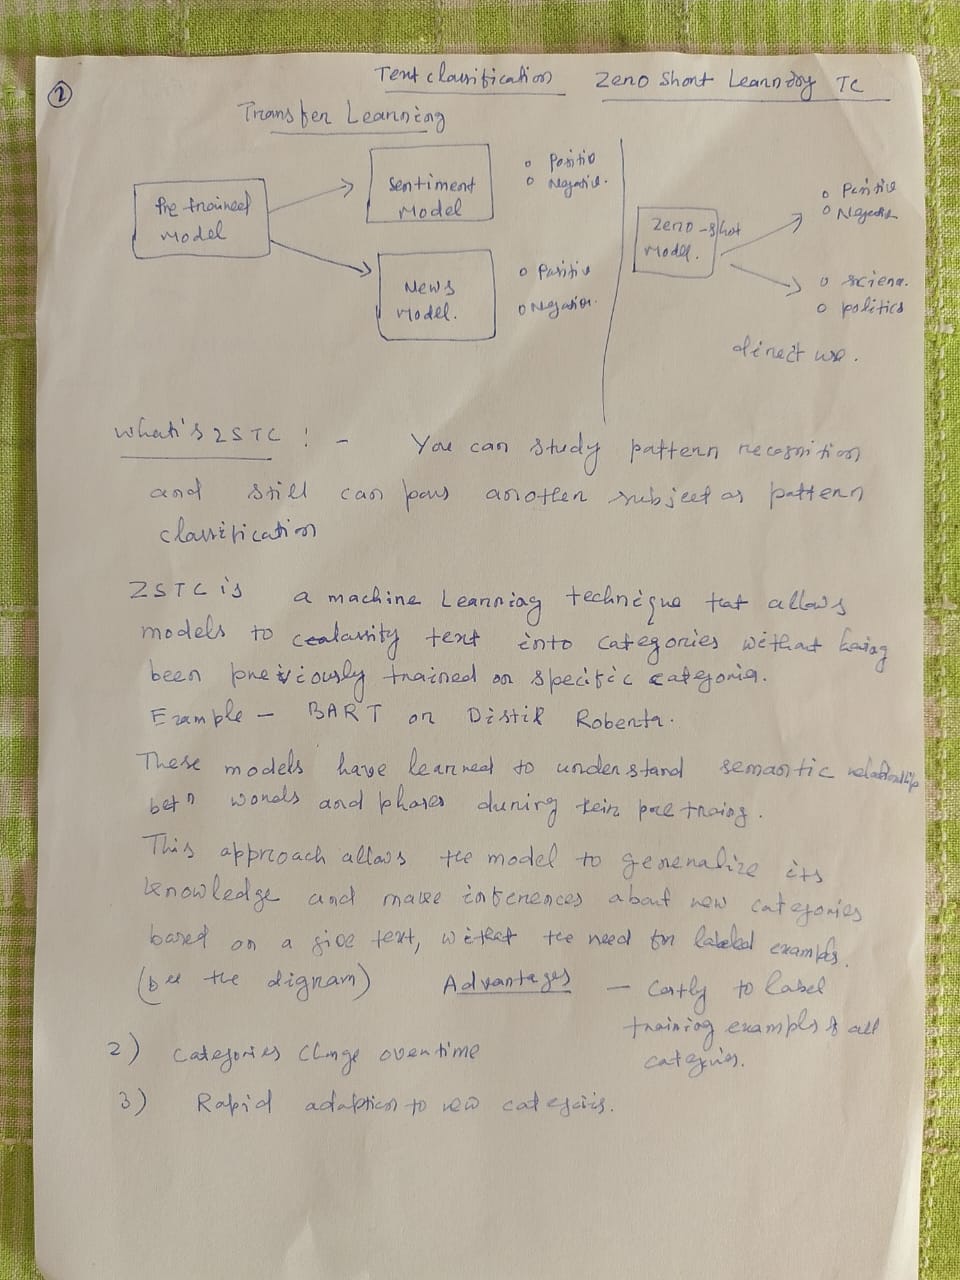 2
Text classification
Zero Short Learning TC
Transfer Learning
Pre trained
Model
Sentiment
Model
o Positiv
o Negativ.
News
Model.
o Positiv
o Negation.
Zero-shot
Model.
o Positive
o Negative
o scienc.
o politics
direct use.
What's ZSTC ! - You can study pattern recognition
and still can pass another subject as pattern
classification
ZSTC is a machine Learning technique that allows
models to classify text into categories without having
been previously trained on specific categories.
Example - BART or Distil Roberta.
These models have learned to understand semantic relationship
betn words and phases during their pre traing.
This approach allows the model to generalize its
knowledge and make inferences about new categories
based on a give text, without the need for labeled examples.
(see the digram) Advantages - Costly to label
training examples of all
categories.
2) Categories change over time
3) Rapid adaption to new categories.